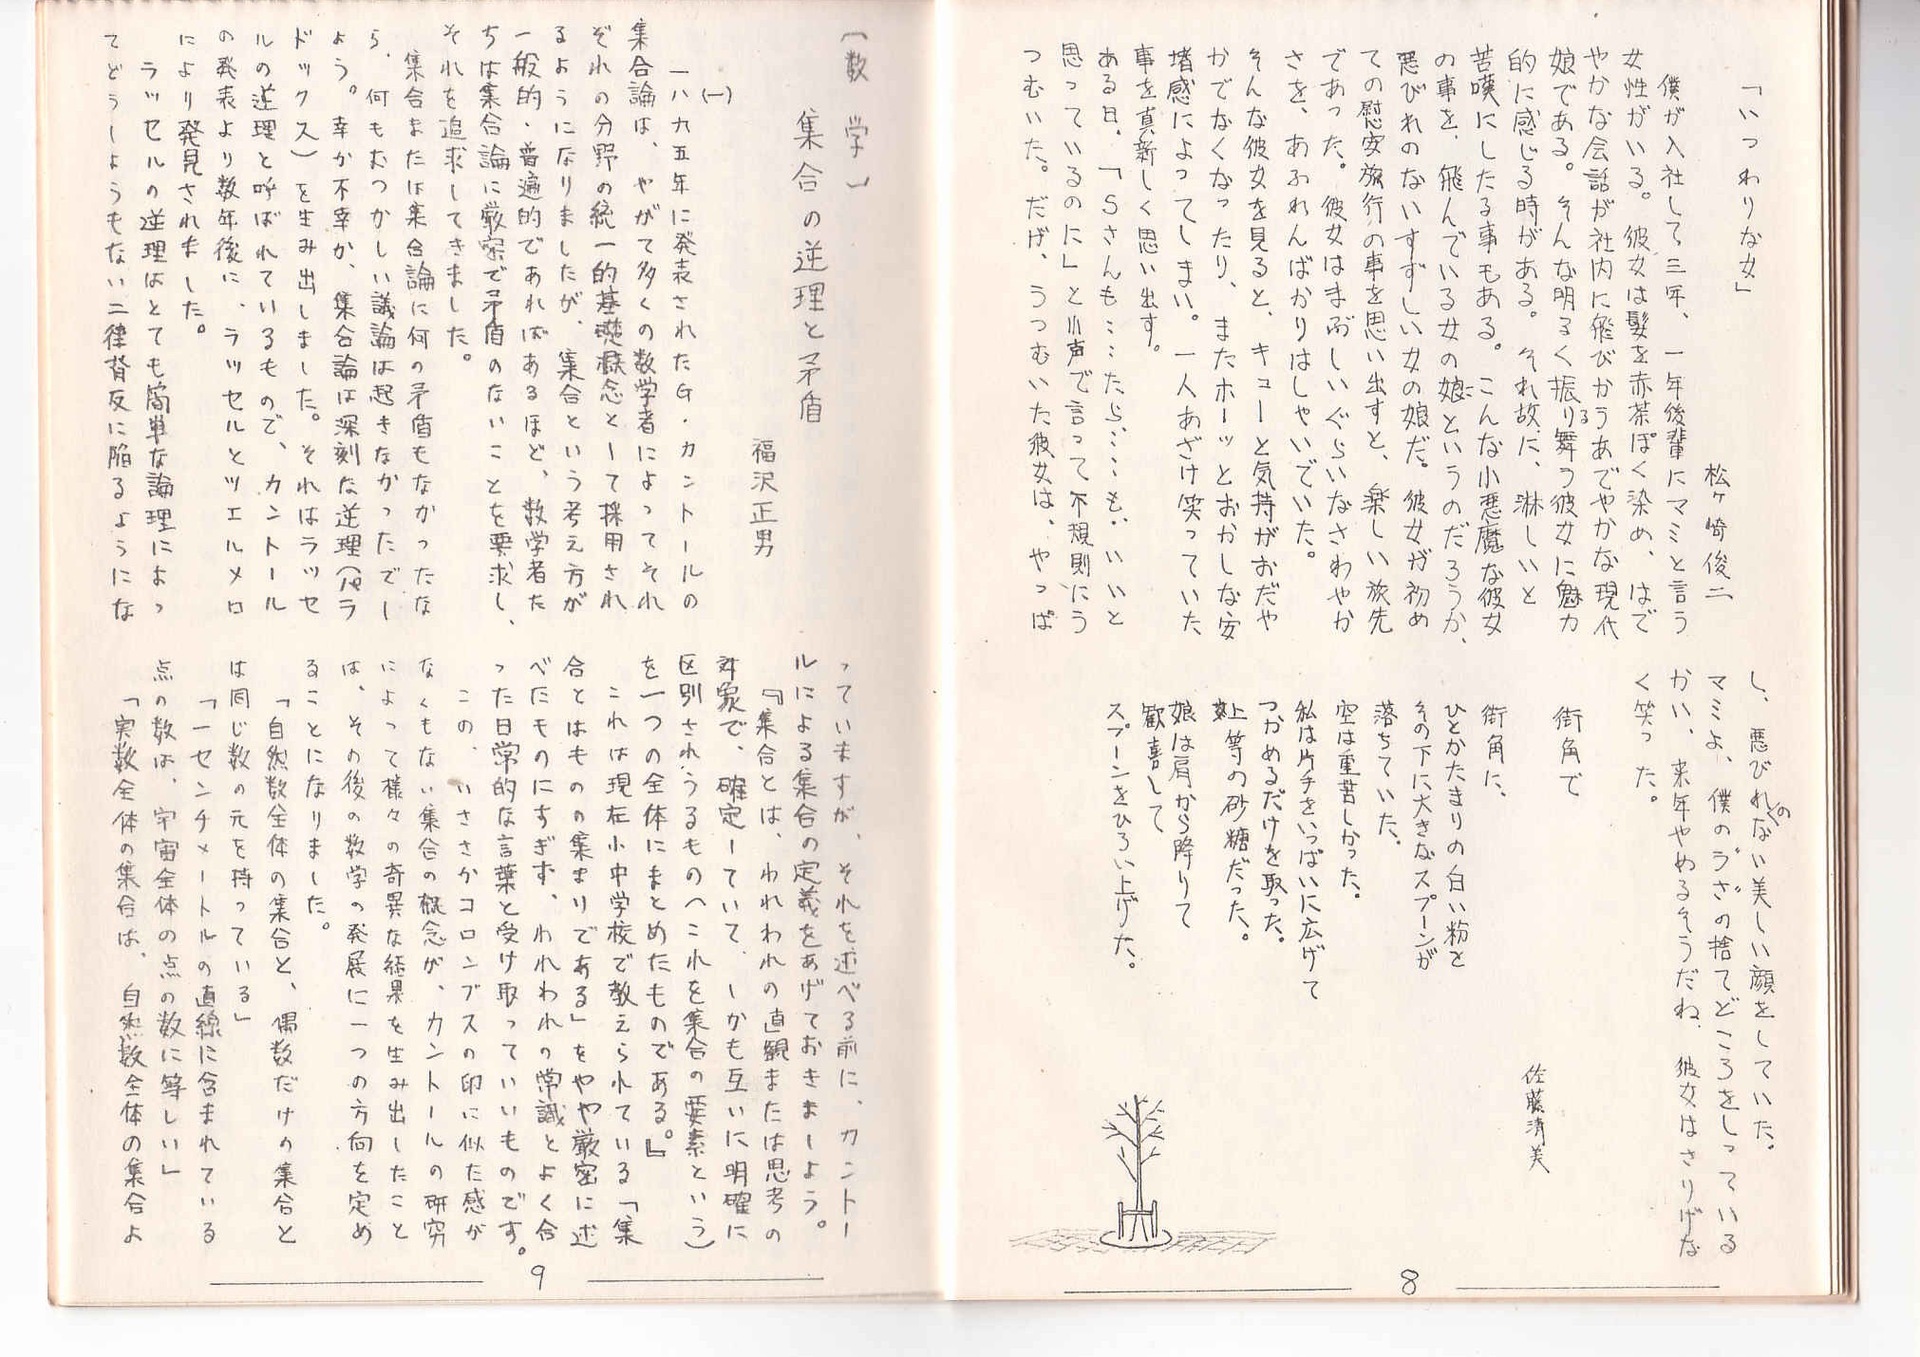 「いつわりな女」
松ヶ崎俊二
僕が入社して三年、一年後輩にマミと言う
女性がいる。彼女は髪を赤茶ぽく染め、はで
やかな会話が社内に飛びかうあでやかな現代
娘である。そんな明るく振り舞る彼女に魅力
的に感じる時がある。それ故に、淋しいと
苦嘆にしたる事もある。こんな小悪魔な彼女
の事を、飛んでいる女の娘というのだろうか、
悪びれのないすずしい女の娘だ。彼女が初め
ての慰安旅行の事を思い出すと、楽しい旅先
であった。彼女はまぶしいぐらいなさわやか
さを、あふれんばかりはしゃいでいた。
そんな彼女を見ると、キューと気持がおだや
かでなくなったり、またホーッとおかしな安
堵感によってしまい。一人あざけ笑っていた
事を真新しく思い出す。
ある日、「Sさんも……たら……も、いいと
思っているのに」と小声で言って不規則にう
つむいた。だけ、うつむいた彼女は、やっぱ
し、悪びれのない美しい顔をしていた。
マミよ、僕のうざの捨てどころをしっている
かい、来年やめるそうだね、彼女はさりげな
く笑った。
街角で
佐藤清美
街角に、
ひとかたまりの白い粉と
その下に大きなスプーンが
落ちていた。
空は重苦しかった。
私は片手をいっぱいに広げて
つかめるだけを取った。
上等の砂糖だった。
娘は肩から降りて
歓喜して
スプーンをひろい上げた。
8
〔数 学〕
集合の逆理と矛盾
福沢正男
(一)
一八九五年に発表されたG・カントールの
集合論は、やがて多くの数学者によってそれ
ぞれの分野の統一的基礎概念として採用され
るようになりましたが、集合という考え方が
一般的・普遍的であればあるほど、数学者た
ちは集合論に厳密で矛盾のないことを要求し、
それを追求してきました。
集合または集合論に何の矛盾もなかったな
ら、何もむつかしい議論は起きなかったでし
ょう。幸か不幸か、集合論は深刻な逆理(パラ
ドックス)を生み出しました。それはラッセ
ルの逆理と呼ばれているもので、カントール
の発表より数年後に、ラッセルとツエルメロ
により発見されました。
ラッセルの逆理はとても簡単な論理によっ
てどうしようもない二律背反に陥るようにな
っていますが、それを述べる前に、カントー
ルによる集合の定義をあげておきましょう。
『集合とは、われわれの直観または思考の
対象で、確定していて、しかも互いに明確に
区別されうるもの(これを集合の要素という)
を一つの全体にまとめたものである。』
これは現在小中学校で教えられている「集
合とはものの集まりである」をやや厳密に述
べたものにすぎず、われわれの常識とよく合
った日常的な言葉と受け取っていいものです。
この、いささかコロンブスの卵に似た感が
なくもない集合の概念が、カントールの研究
によって様々の奇異な結果を生み出したこと
は、その後の数学の発展に一つの方向を定め
ることになりました。
「自然数全体の集合と、偶数だけの集合と
は同じ数の元を持っている」
「一センチメートルの直線に含まれている
点の数は、宇宙全体の点の数に等しい」
「実数全体の集合は、自然数全体の集合よ
9